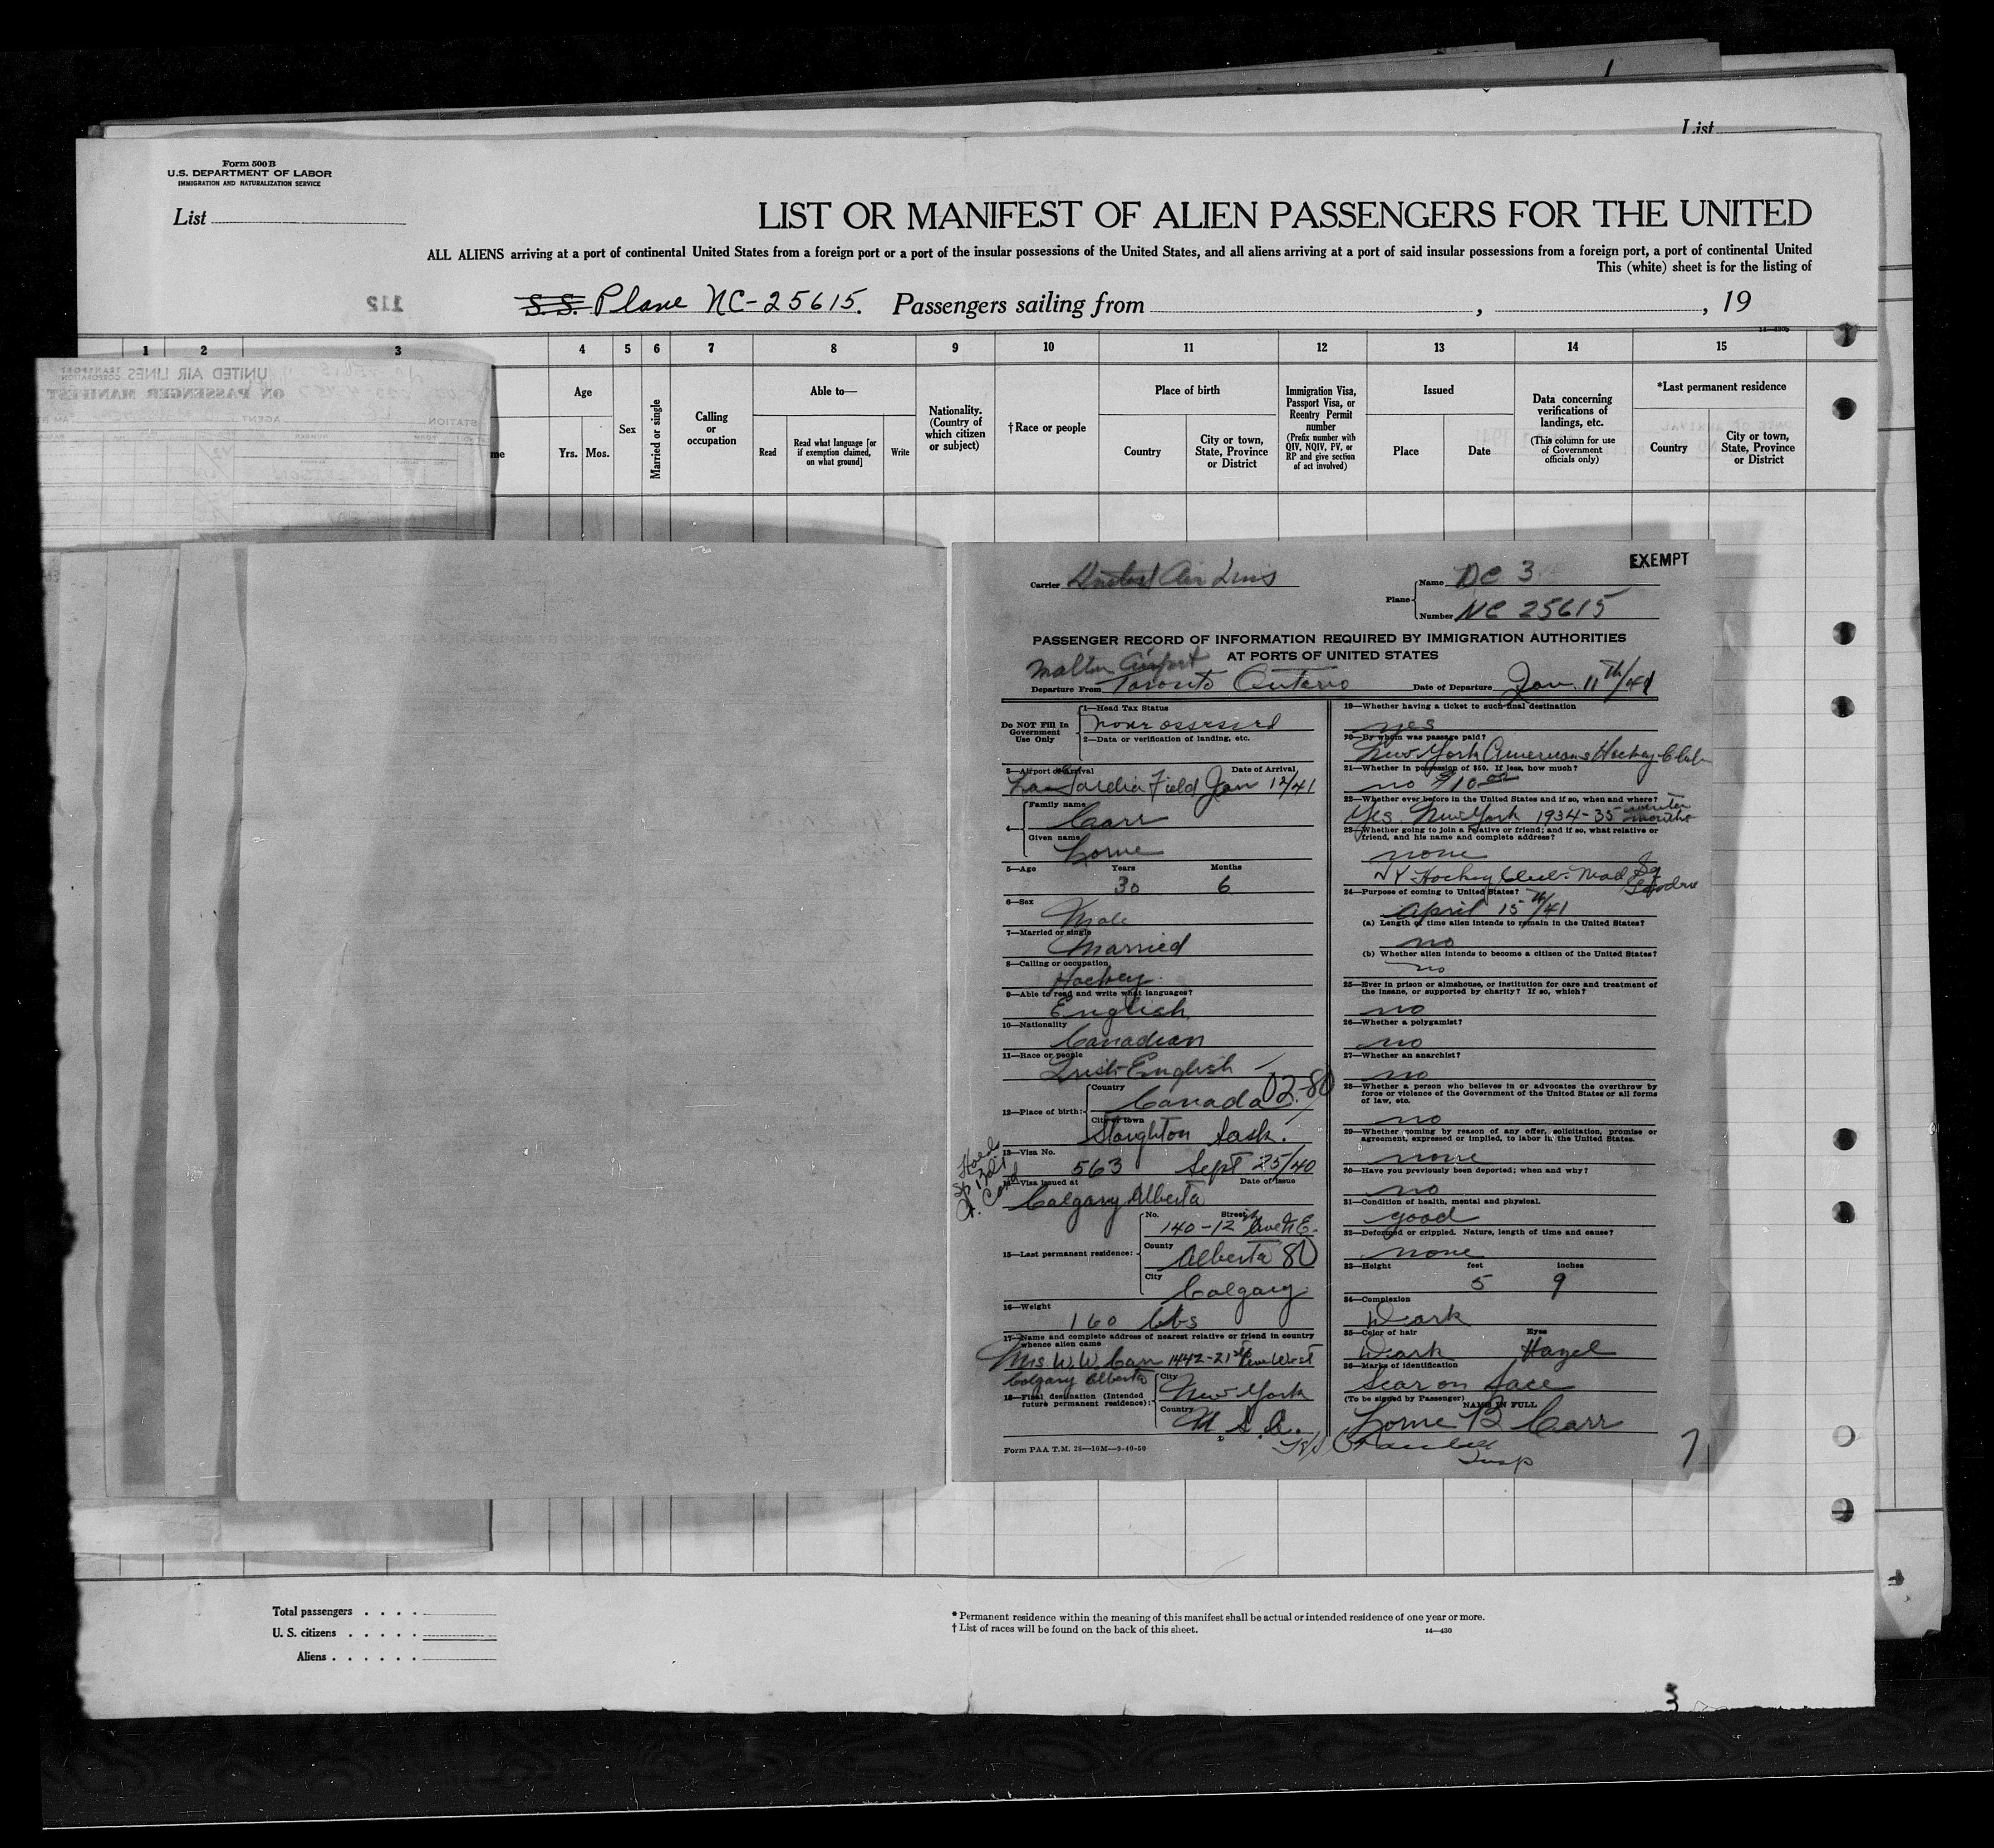 List
Form 500 B
U.S. DEPARTMENT OF LABOR
IMMIGRATION AND NATURALIZATION SERVICE
List
LIST OR MANIFEST OF ALIEN PASSENGERS FOR THE UNITED
ALL ALIENS arriving at a port of continental United States from a foreign port or a part of the insular possessions of the United States, and all aliens arriving at a port of said insular possessions from a foreign port, a part of continental United
This (white) sheet is for the listing of
112
S.S. Plane NC-25615. Passengers sailing from , , 19
1 2 3 4 5 6 7 8 9 10 11 12 13 14 15
UNITED AIR LINES TRANSPORT CORPORATION
ON PASSENGER MANIFEST
STATION AGENT
Age
Yrs. Mos.
Sex
Married or single
Calling or occupation
Able to—
Read
Read what language [or if exemption claimed, on what ground]
Write
Nationality. (Country of which citizen or subject)
†Race or people
Place of birth
Country
City or town, State, Province or District
Immigration Visa, Passport Visa, or Reentry Permit number
(Prefix number with QIV, NQIV, PV, or RP and give section of act involved)
Issued
Place
Date
Data concerning verifications of landings, etc.
(This column for use of Government officials only)
*Last permanent residence
Country
City or town, State, Province or District
EXEMPT
Carrier United Air Lines
Plane Name DC 3
Number NC 25615
PASSENGER RECORD OF INFORMATION REQUIRED BY IMMIGRATION AUTHORITIES
AT PORTS OF UNITED STATES
Malton Airport
Departure From Toronto Ontario Date of Departure Jan. 11th/41
Do NOT Fill In Government Use Only
1—Head Tax Status
None assessed
2—Data or verification of landing, etc.
3—Airport of Arrival Date of Arrival
LaGuardia Field Jan 12/41
4—
Family name
Carr
Given name
Lorne
5—Age Years Months
30 6
6—Sex
Male
7—Married or single
Married
8—Calling or occupation
Hockey
9—Able to read and write what languages?
English
10—Nationality
Canadian
11—Race or people
Irish-English
12—Place of birth:
Country
Canada 02-80
City or town
Stoughton Sask.
13—Visa No.
563 Sept 25/40
14—Visa issued at Date of issue
Calgary Alberta
Card
15—Last permanent residence:
No. Street
140-12th Ave N E.
County
Alberta 80
City
Calgary
16—Weight
160 lbs
17—Name and complete address of nearest relative or friend in country whence alien came
Mrs W. W. Carr 1442-21st Ave West
Calgary Alberta
18—Final destination (Intended future permanent residence):
City
New York
Country
U. S. A.
Form PAA T.M. 28—10M—9-40-50
19—Whether having a ticket to such final destination
yes
20—By whom was passage paid?
New York Americans Hockey Club
21—Whether in possession of $50. If less, how much?
no $10.00
22—Whether ever before in the United States and if so, when and where?
Yes. New York 1934-35 winter months
23—Whether going to join a relative or friend; and if so, what relative or friend, and his name and complete address?
none
NY Hockey Club. Mad Sq
24—Purpose of coming to United States?
April 15th/41
(a) Length of time alien intends to remain in the United States?
no
(b) Whether alien intends to become a citizen of the United States?
no
25—Ever in prison or almshouse, or institution for care and treatment of the insane, or supported by charity? If so, which?
no
26—Whether a polygamist?
no
27—Whether an anarchist?
no
28—Whether a person who believes in or advocates the overthrow by force or violence of the Government of the United States or all forms of law, etc.
no
29—Whether coming by reason of any offer, solicitation, promise or agreement, expressed or implied, to labor in the United States.
none
30—Have you previously been deported; when and why?
no
31—Condition of health, mental and physical.
good
32—Deformed or crippled. Nature, length of time and cause?
none
33—Height feet inches
5 9
34—Complexion
Dark
35—Color of hair Eyes
Dark Hazel
36—Marks of identification
Scar on face
(To be signed by Passenger) NAME IN FULL
Lorne B Carr
Insp
7
Total passengers
U. S. citizens
Aliens
* Permanent residence within the meaning of this manifest shall be actual or intended residence of one year or more.
† List of races will be found on the back of this sheet.
14—430
3